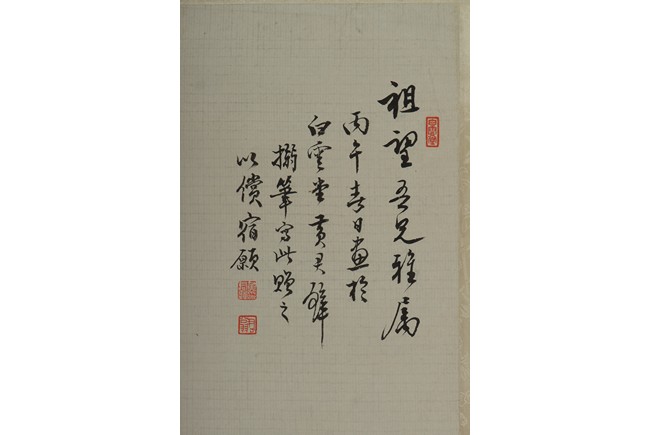 祖望吾兄雅属
丙午春日画於
白雲堂黄君璧
搦筆写此贈之
以償宿願